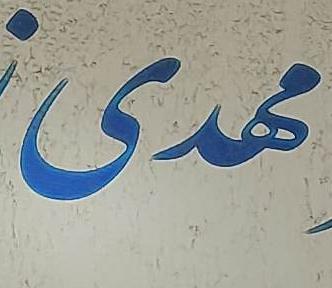 مهدی